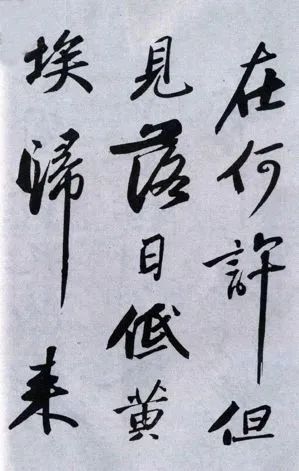 在何許但
見落日低黃
埃歸来